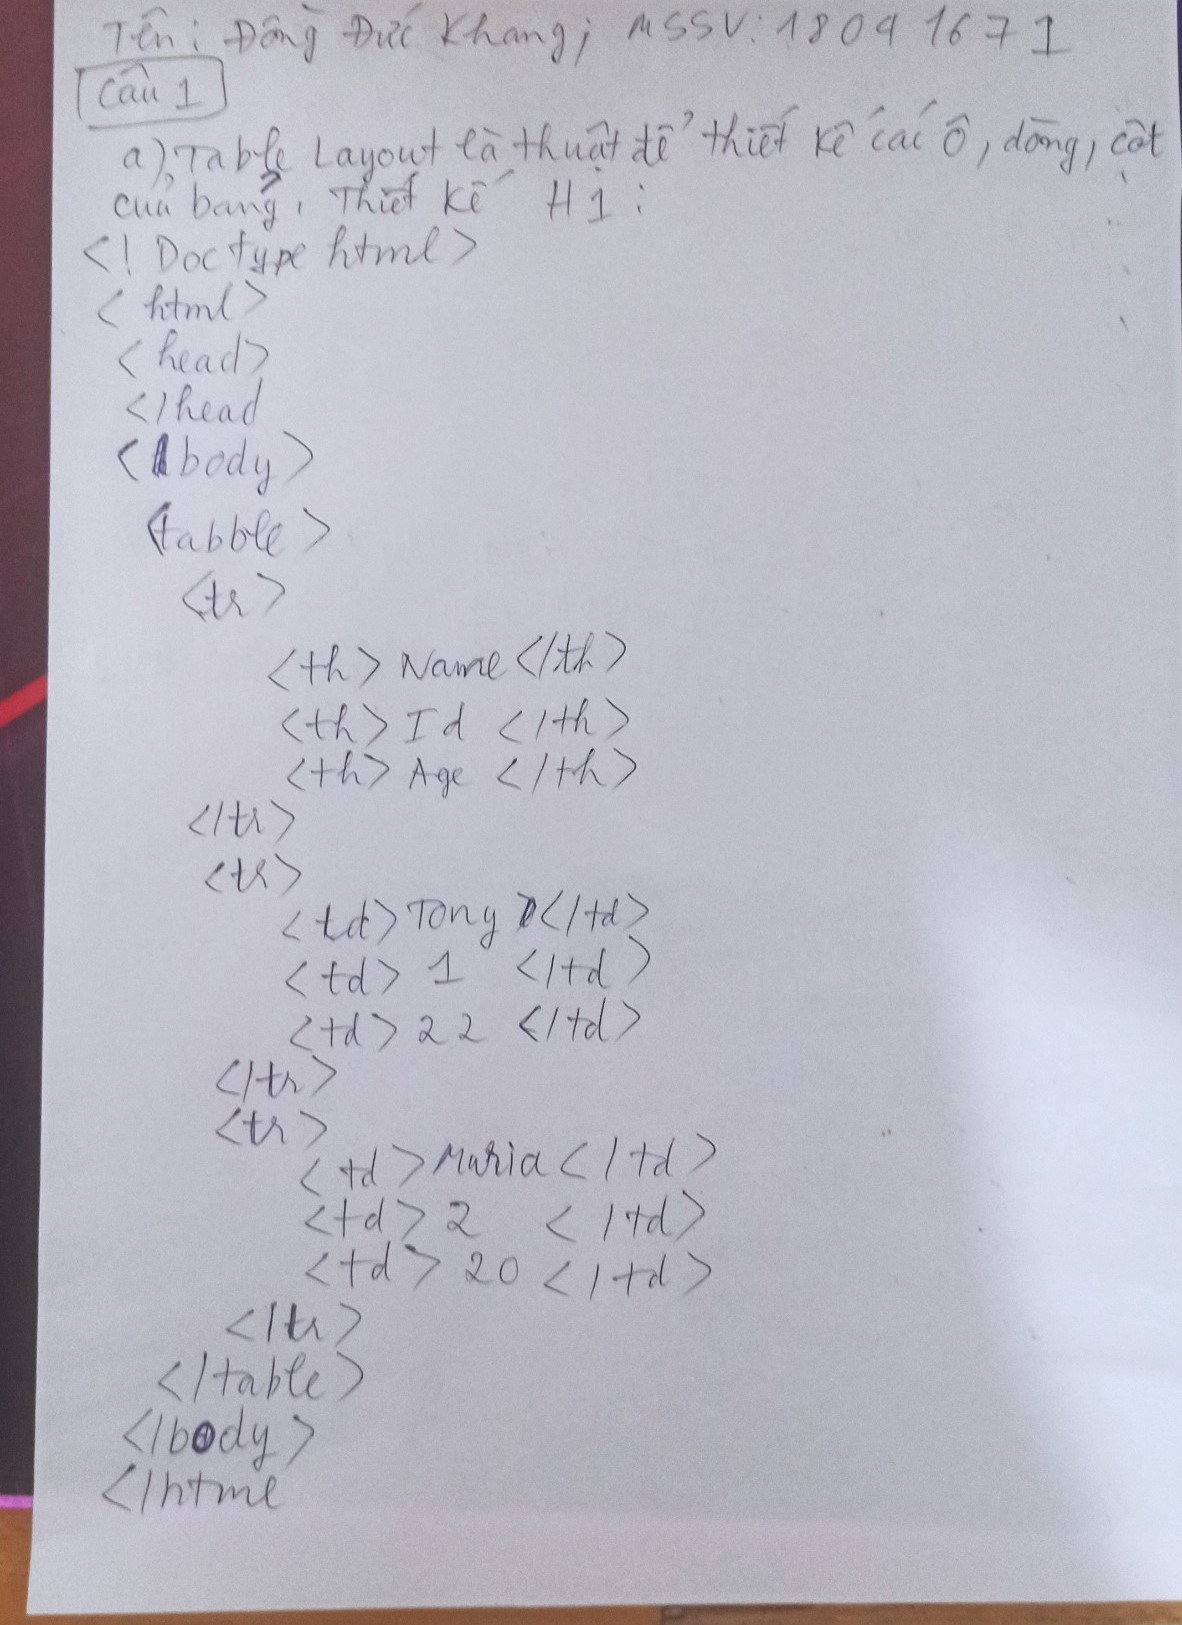 Tên: Đồng Đức Khang; MSSV: 18041671
Câu 1
a), Table Layout là thuật để thiết kế các ô, dòng, cột
của bảng, Thiết kế H1:
<! Doctype html>
< html>
<head>
</head
<body>
<tabble>
<tr>
<th> Name </th>
<th> Id </th>
<th> Age </th>
</tr>
<tr>
<td> Tony </td>
<td> 1 </td>
<td> 22 </td>
</tr>
<tr>
<td> Maria </td>
<td> 2 </td>
<td> 20 </td>
</tr>
</table>
</body>
</html